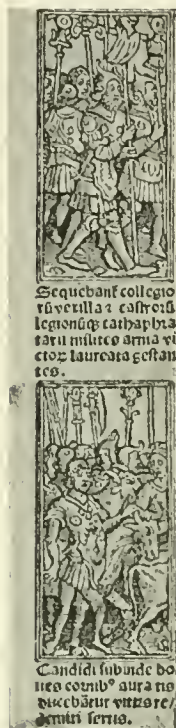 Sequebant̃ collegio
rũ vexilla ⁊ castrorũ
legionũq; cathaphra
tarii milites arma vi
ctoꝝ laureata gestan
tes.
Candidi subinde bo
ues cornibꝰ auratis
ducebãtur vittis re/
dimiti sertis.